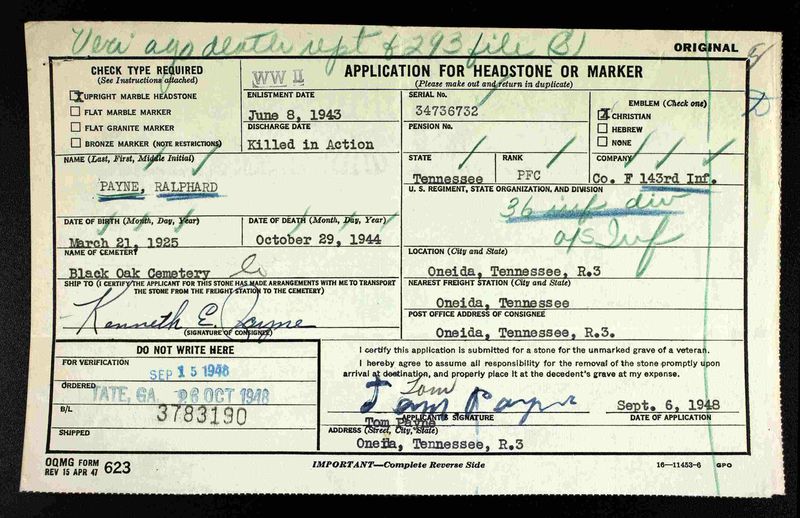 Veri ago death rept & 293 file (3)
ORIGINAL
CHECK TYPE REQUIRED
(See Instructions attached)
X UPRIGHT MARBLE HEADSTONE
FLAT MARBLE MARKER
FLAT GRANITE MARKER
BRONZE MARKER (NOTE RESTRICTIONS)
WW II
APPLICATION FOR HEADSTONE OR MARKER
(Please make out and return in duplicate)
ENLISTMENT DATE
June 8, 1943
DISCHARGE DATE
Killed in Action
SERIAL No.
34736732
PENSION No.
EMBLEM (Check one)
X CHRISTIAN
HEBREW
NONE
NAME (Last, First, Middle Initial)
PAYNE, RALPHARD
STATE
Tennessee
RANK
PFC
COMPANY
Co. F 143rd Inf.
U. S. REGIMENT, STATE ORGANIZATION, AND DIVISION
36 inf div
a/s Inf
DATE OF BIRTH (Month, Day, Year)
March 21, 1925
DATE OF DEATH (Month, Day, Year)
October 29, 1944
NAME OF CEMETERY
Black Oak Cemetery
LOCATION (City and State)
Oneida, Tennessee, R.3
SHIP TO (I CERTIFY THE APPLICANT FOR THIS STONE HAS MADE ARRANGEMENTS WITH ME TO TRANSPORT
THE STONE FROM THE FREIGHT STATION TO THE CEMETERY)
Kenneth E. Payne
(SIGNATURE OF CONSIGNEE)
NEAREST FREIGHT STATION (City and State)
Oneida, Tennessee
POST OFFICE ADDRESS OF CONSIGNEE
Oneida, Tennessee, R.3.
DO NOT WRITE HERE
FOR VERIFICATION
SEP 15 1948
ORDERED
TATE, GA. 26 OCT 1948
B/L
3783190
SHIPPED
I certify this application is submitted for a stone for the unmarked grave of a veteran.
I hereby agree to assume all responsibility for the removal of the stone promptly upon
arrival at destination, and properly place it at the decedent's grave at my expense.
Tom
Tom Payne
APPLICANT'S SIGNATURE
Tom Payne
Sept. 6, 1948
DATE OF APPLICATION
ADDRESS (Street, City, State)
Oneida, Tennessee, R.3
OQMG FORM
REV 15 APR 47 623
IMPORTANT—Complete Reverse Side
16—11453-6 GPO